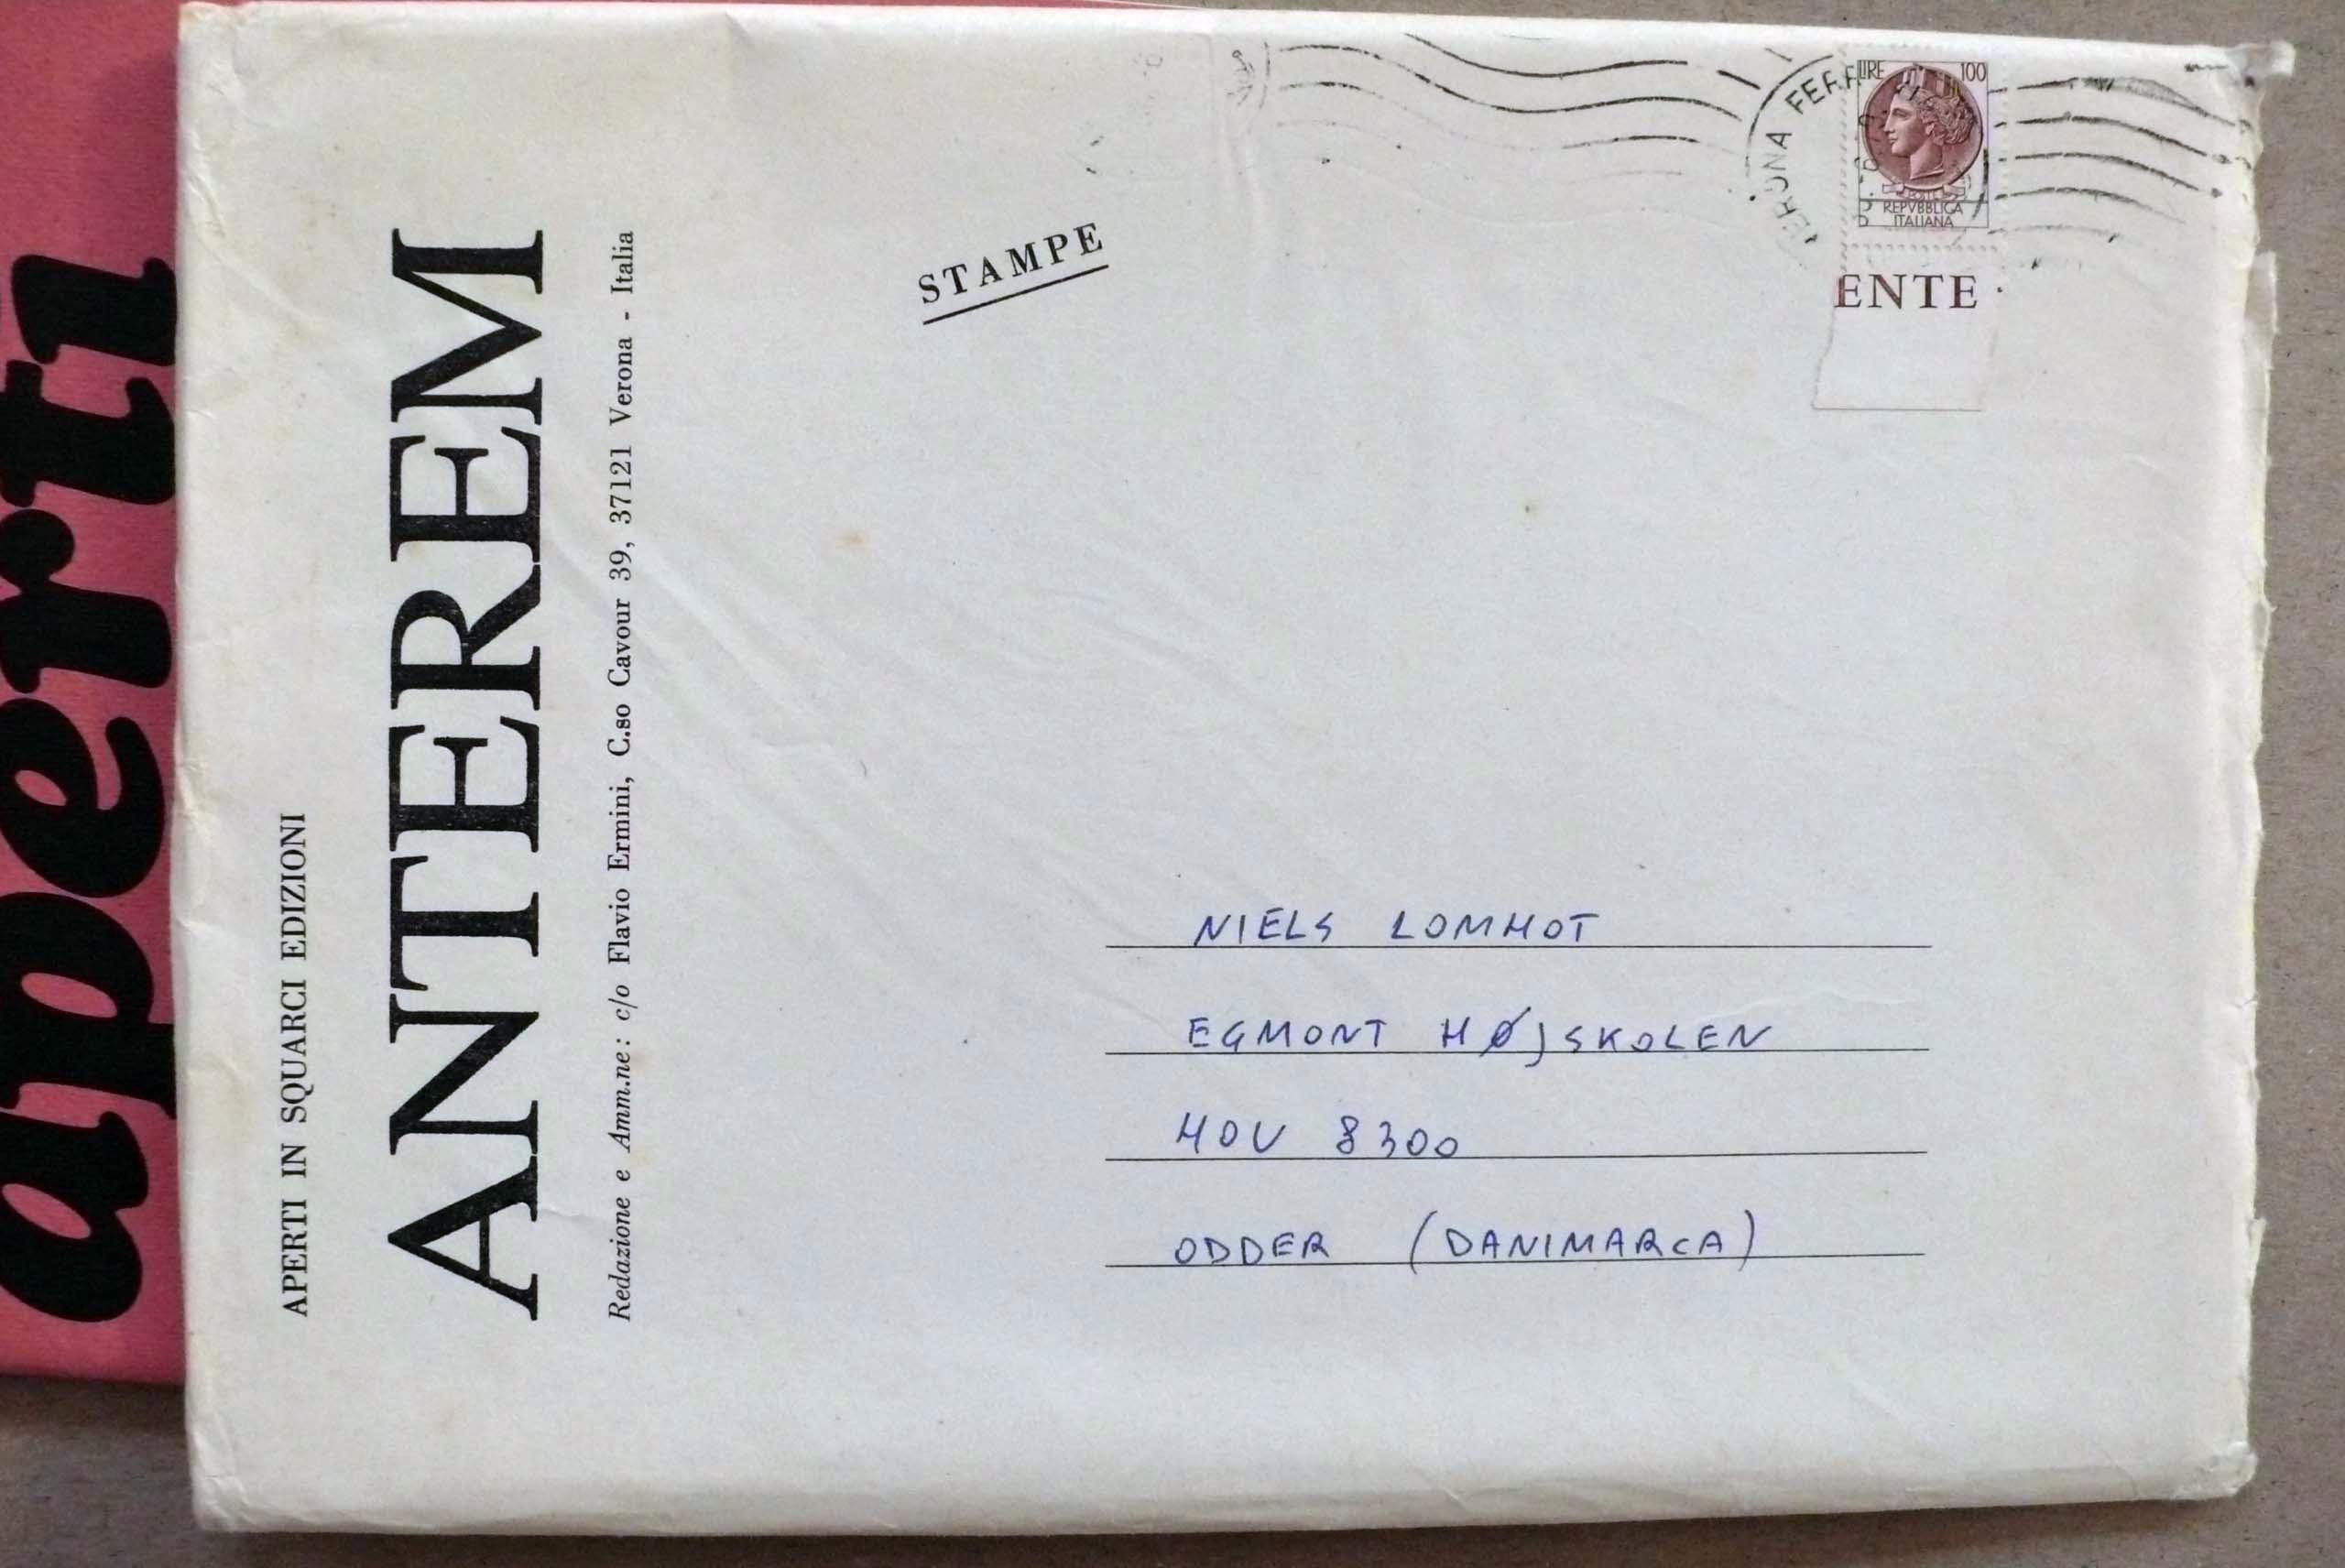 aperti
APERTI IN SQUARCI EDIZIONI
ANTEREM
Redazione e Amm.ne: c/o Flavio Ermini, C.so Cavour 39, 37121 Verona - Italia
STAMPE
VERONA FERR
LIRE 100
REPVBBLICA
ITALIANA
ENTE
NIELS LOMHOT
EGMONT HØJSKOLEN
HOV 8300
ODDER (DANIMARCA)